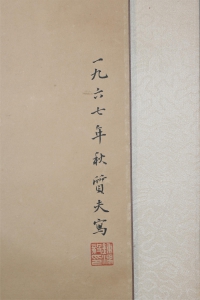 一九六七年秋賈夫寫